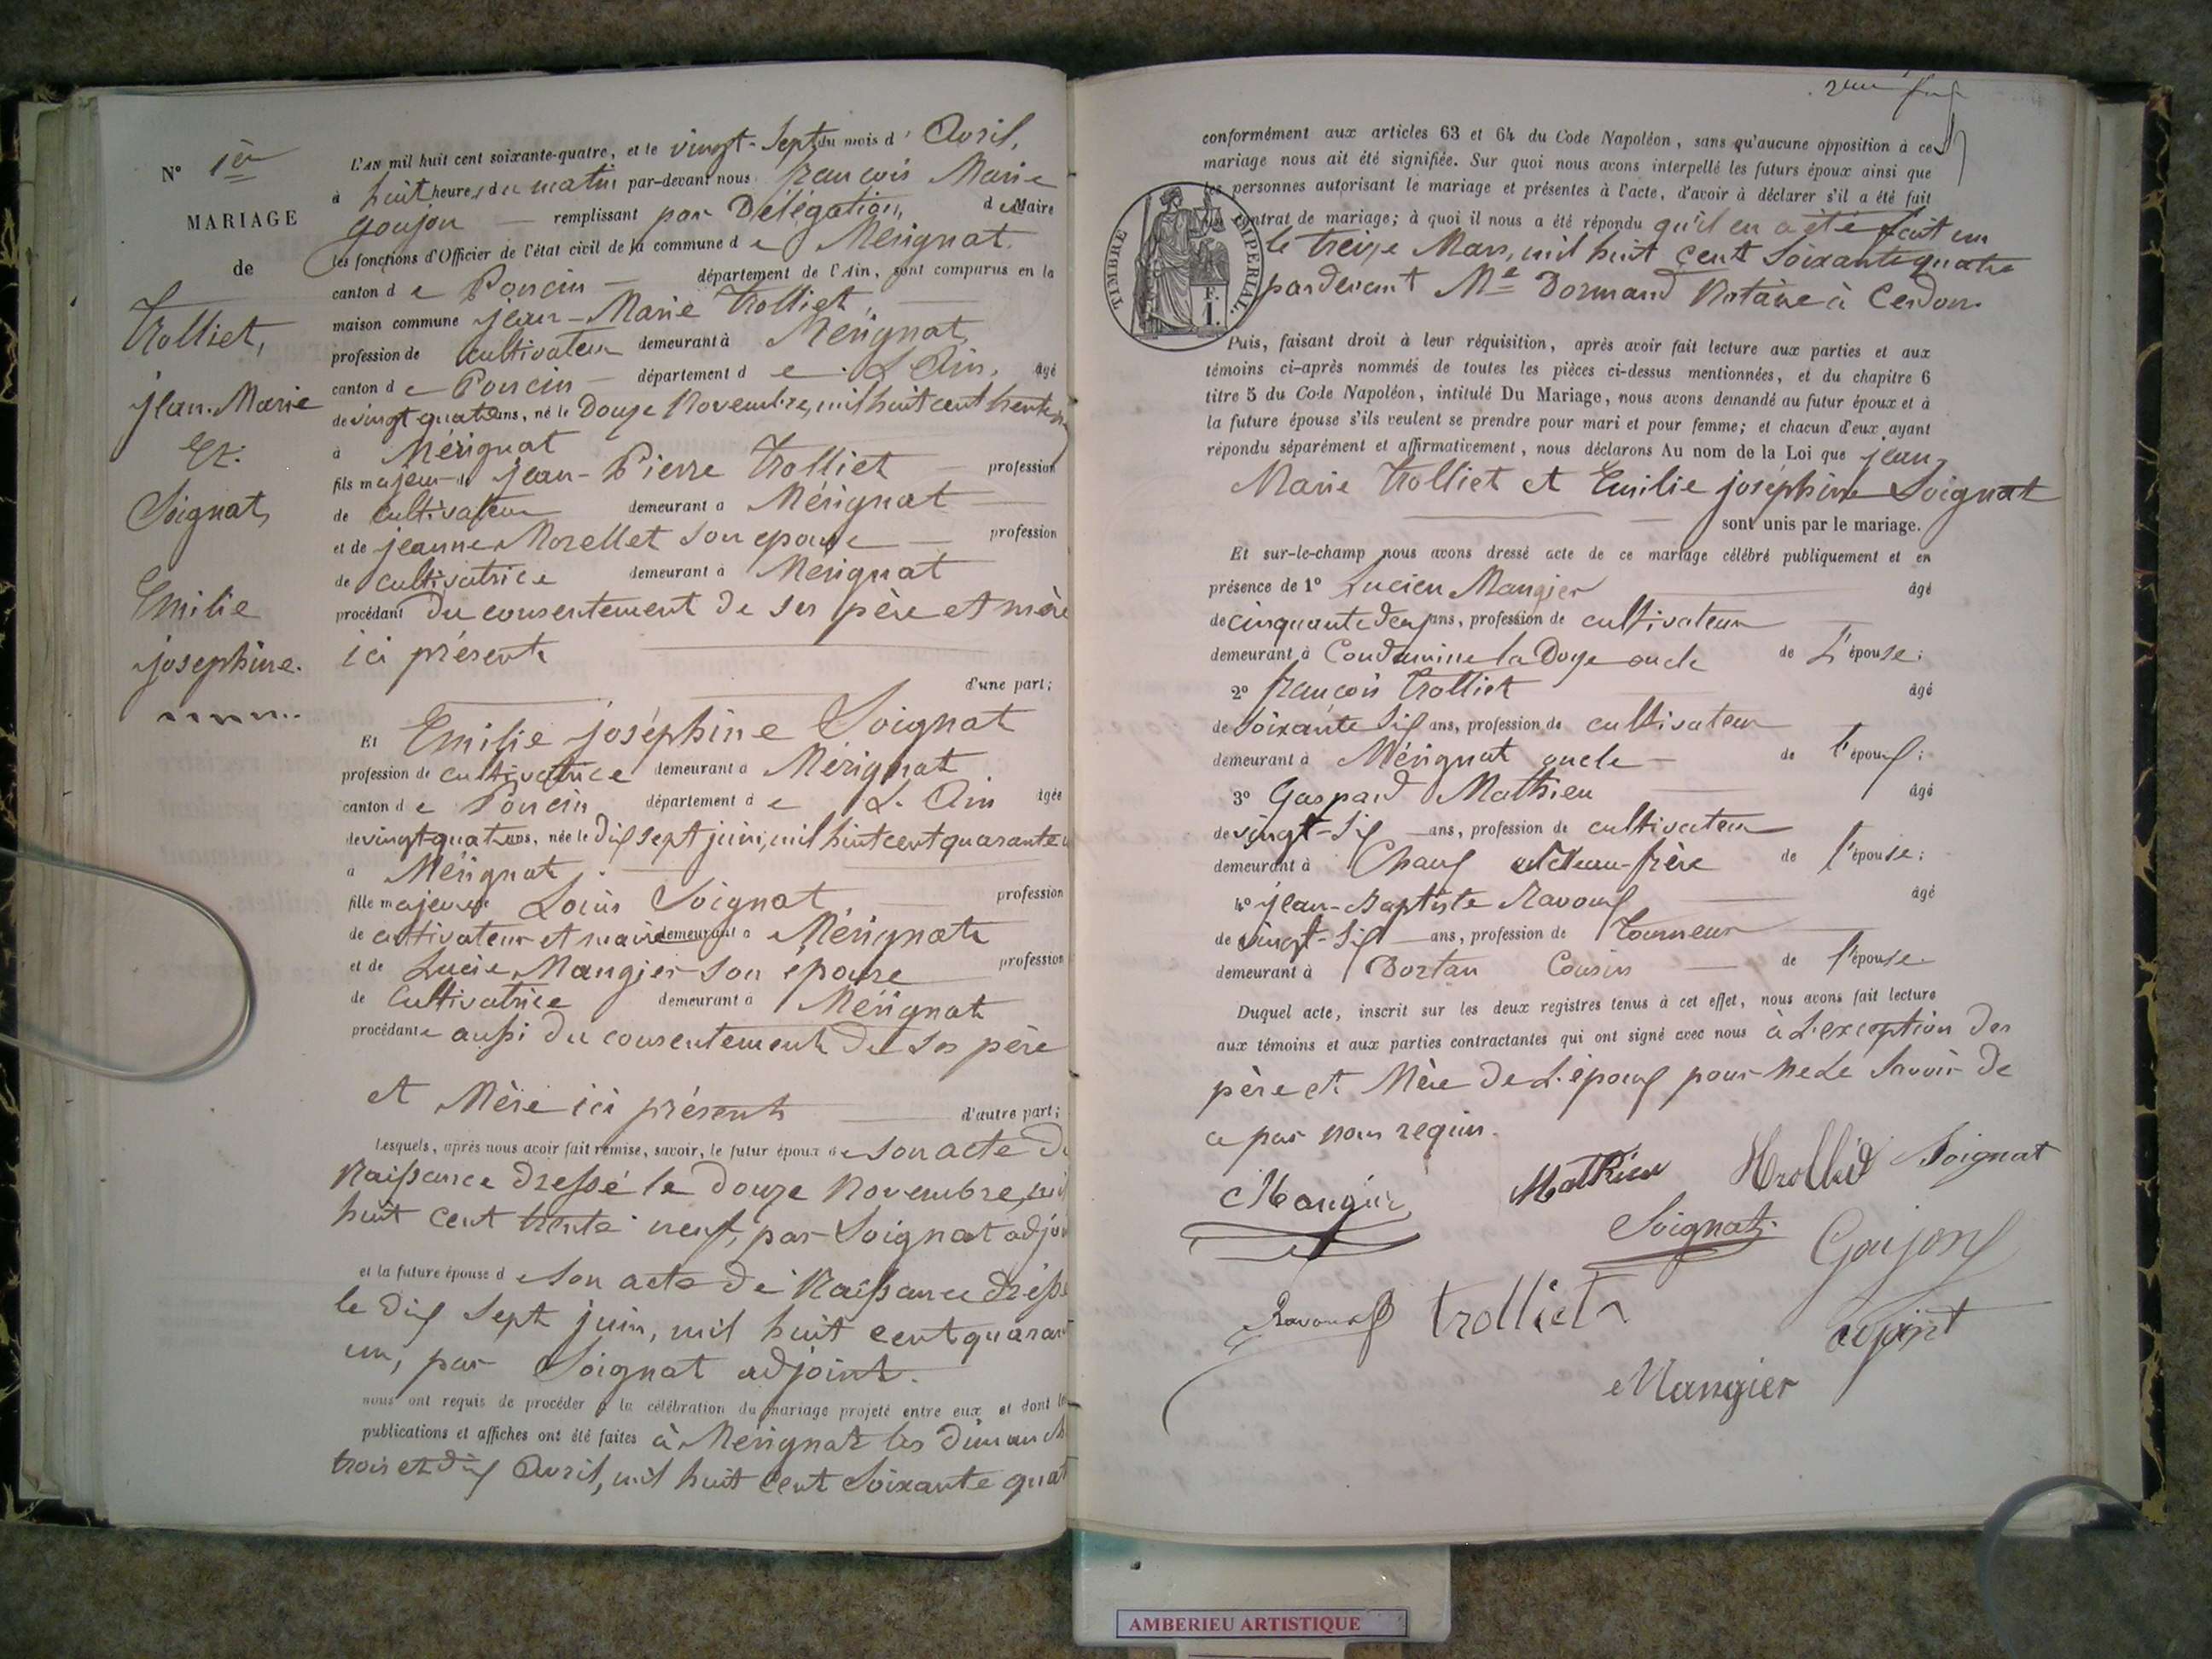 N° 1er
MARIAGE
de
Trolliet,
jean-Marie
Et.
Soignat,
Emilie
josephine.
L'AN mil huit cent soixante-quatre, et le vingt-Sept du mois d' Avril,
à huit heures du matin par-devant nous françois Marie
Goujon remplissant par Délégation, de Maire
les fonctions d'Officier de l'état civil de la commune de Mérignat.
canton de Poncin département de l'Ain, sont comparus en la
maison commune jean-Marie Trolliet,
profession de cultivateur demeurant à Mérignat,
canton de Poncin département de L'Ain, âgé
de vingt quatre ans, né le Douze Novembre, mil huit cent trente
à Mérignat
fils majeur de jean-Pierre Trolliet profession
de cultivateur demeurant à Mérignat
et de jeanne Morellet son épouse profession
de cultivatrice demeurant à Mérignat
procédant du consentement de ses père et mère
ici présents
d'une part;
Et Emilie joséphine Soignat
profession de cultivatrice demeurant à Mérignat
canton de Poncin département de L'Ain âgée
de vingt-quatre ans, née le Dix sept juin, mil huit cent quarante
à Mérignat
fille majeure de Loüis Soignat profession
de cultivateur et maire demeurant à Mérignat
et de Lucie Mangier son épouse profession
de Cultivatrice demeurant à Mérignat
procédante aussi du consentement de ses père
et Mère ici présents d'autre part;
Lesquels, après nous avoir fait remise, savoir, le futur époux de son acte de
Naissance Dressé le Douze Novembre, mil
huit cent trente neuf, par Soignat adjoi
et la future épouse de son acte de Naissance dressé
le Dix Sept juin, mil huit cent quarant
un, par Soignat adjoint.
nous ont requis de procéder à la célébration du mariage projeté entre eux et dont les
publications et affiches ont été faites à Mérignat les dimanch
trois et dix Avril, mil huit cent Soixante quat
conformément aux articles 63 et 64 du Code Napoléon, sans qu'aucune opposition à ce
mariage nous ait été signifiée. Sur quoi nous avons interpellé les futurs époux ainsi que
les personnes autorisant le mariage et présentes à l'acte, d'avoir à déclarer s'il a été fait
contrat de mariage; à quoi il nous a été répondu qu'il en a été fait un
le treize Mars, mil huit cent Soixante quatre
pardevant Me Dormand Notaire à Cerdon.
TIMBRE IMPERIAL.
Puis, faisant droit à leur réquisition, après avoir fait lecture aux parties et aux
témoins ci-après nommés de toutes les pièces ci-dessus mentionnées, et du chapitre 6
titre 5 du Code Napoléon, intitulé Du Mariage, nous avons demandé au futur époux et à
la future épouse s'ils veulent se prendre pour mari et pour femme; et chacun d'eux ayant
répondu séparément et affirmativement, nous déclarons Au nom de la Loi que jean,
Marie Trolliet et Emilie joséphine Soignat
sont unis par le mariage.
Et sur-le-champ nous avons dressé acte de ce mariage célébré publiquement et en
présence de 1° Lucien Mangier âgé
de cinquante deux ans, profession de cultivateur
demeurant à Condamine la Doye oncle de L'épouse;
2° françois Trolliet âgé
de Soixante Six ans, profession de cultivateur
demeurant à Mérignat oncle de l'époux;
3° Gaspard Mathieu âgé
de vingt-Six ans, profession de cultivateur
demeurant à Chaux beau-frère de l'épouse;
4° jean-Baptiste Ravoux âgé
de vingt-Six ans, profession de Tourneur
demeurant à Dortan Cousin de l'épouse.
Duquel acte, inscrit sur les deux registres tenus à cet effet, nous avons fait lecture
aux témoins et aux parties contractantes qui ont signé avec nous à L'exception des
père et Mère de L'époux pour ne Le Savoir de
ce par nous requis.
Mangier Mathieu Trolliet Soignat
Soignat Goujon
Ravoux Trolliet adjoint
Mangier
AMBERIEU ARTISTIQUE